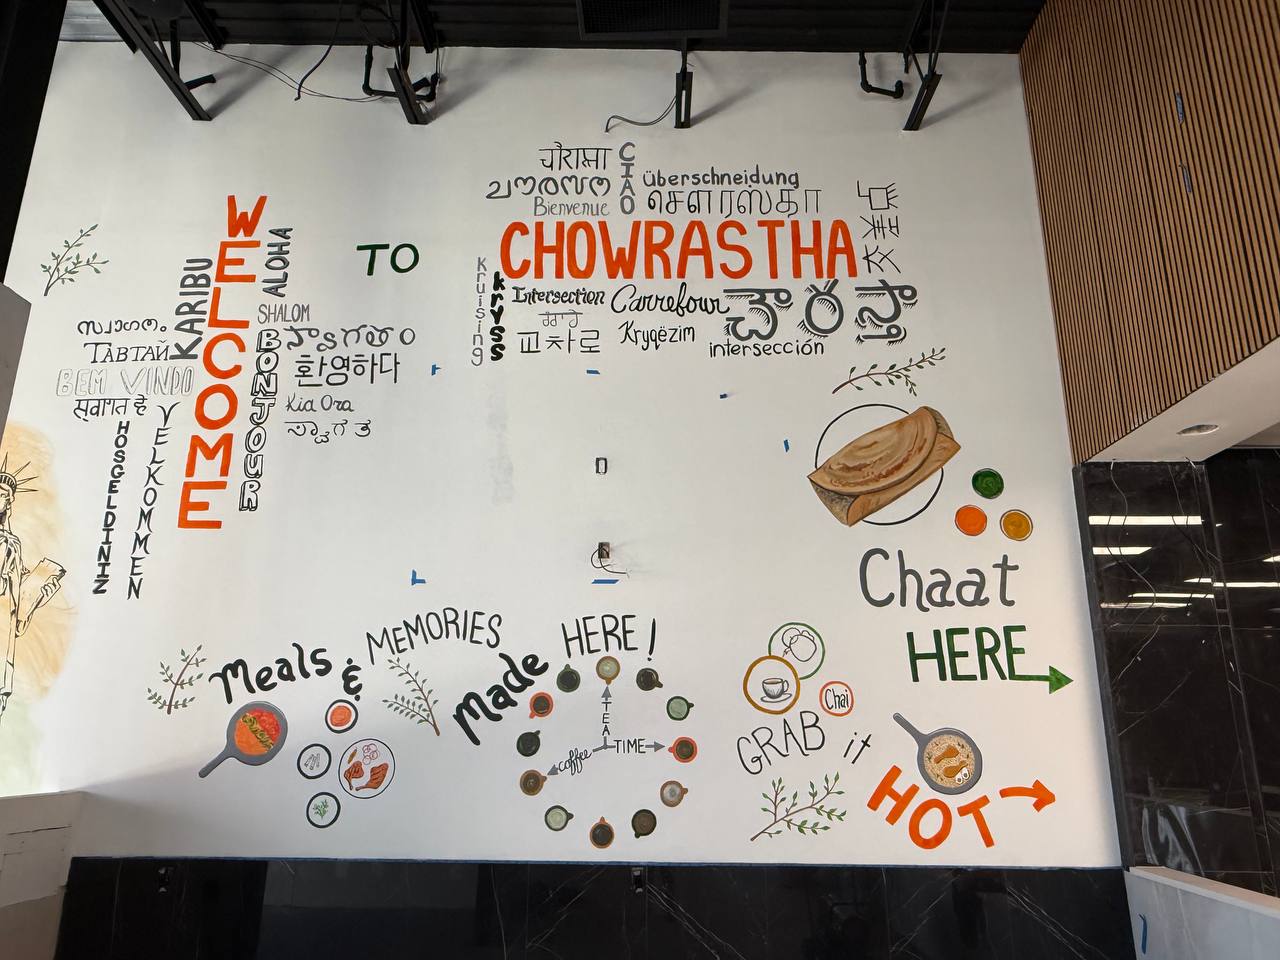 WELCOME
KARIBU
ALOHA
SHALOM
സ്വാഗതം
BEM VINDO
स्वागत है
HOSGELDINIZ
VELKOMMEN
BONJOUR
환영하다
Kia Ora
TO
चौरास्ता
CIAO
überschneidung
ചൗരസ്ത
Bienvenue
சௌரஸ்தா
CHOWRASTHA
Kruising
kryss
Intersection
Carrefour
చౌరస్తా
교차로
Kryqëzim
intersección
Chaat
HERE
Meals
&
MEMORIES
Made
HERE!
TEA
TIME
coffee
Chai
GRAB it
HOT